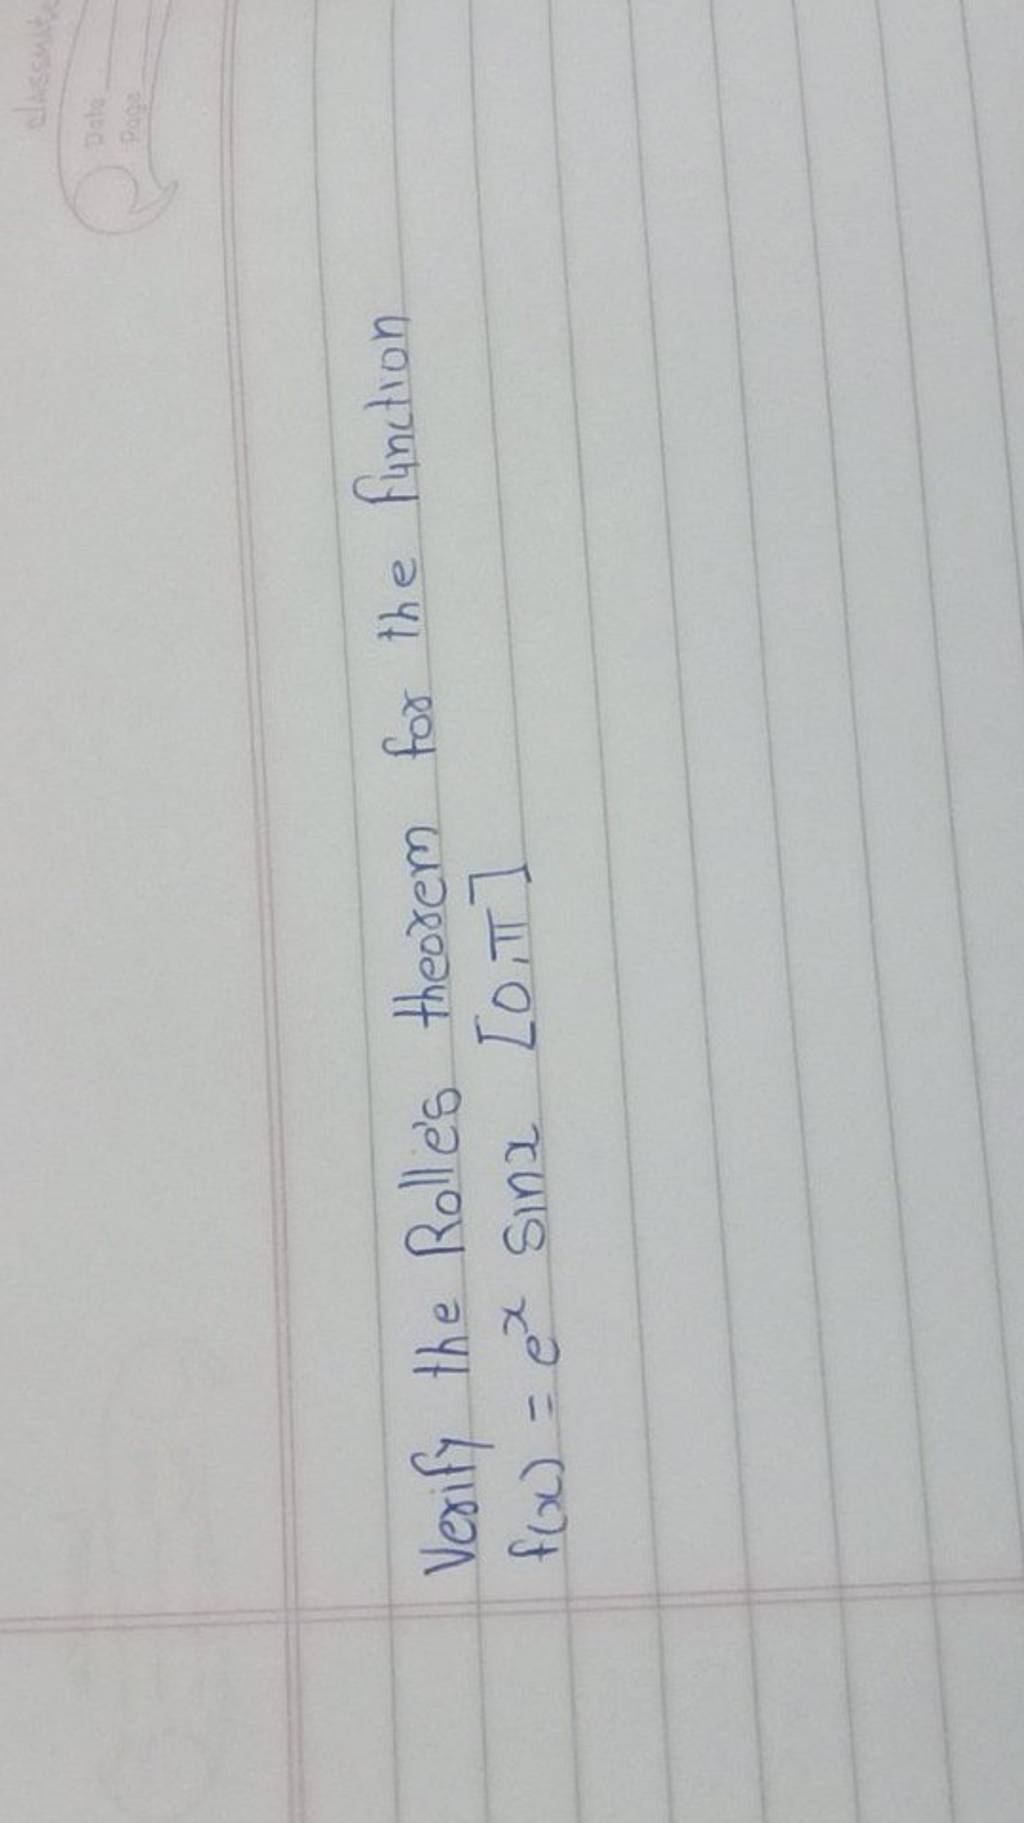 classmate
Date
Page
Verify the Rolle's theorem for the function
f(x) = e^x sinx [0,π]